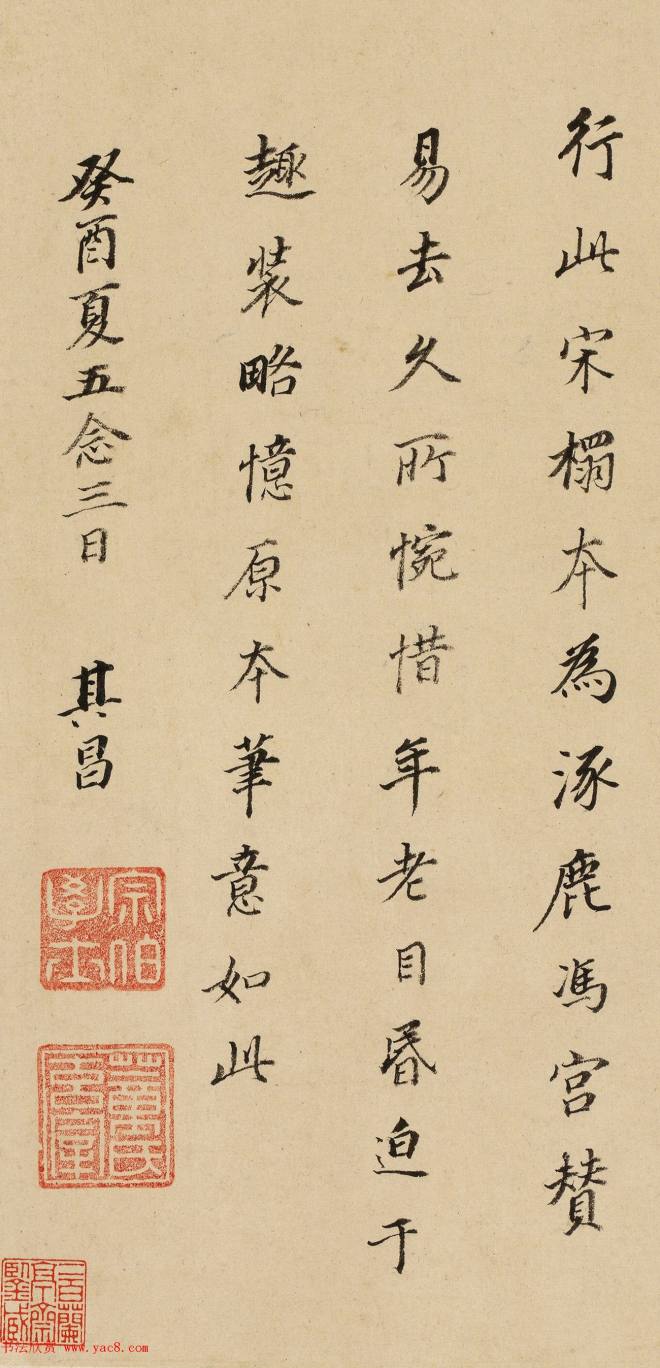 行此宋榻本為涿鹿馮宮贊
易去久所惋惜年老目昬迫于
趣裝略憶原本筆意如此
癸酉夏五念三日 其昌
宗伯學士
董氏玄宰
三百蘭亭齋鑒藏
书法欣赏 www.yac8.com